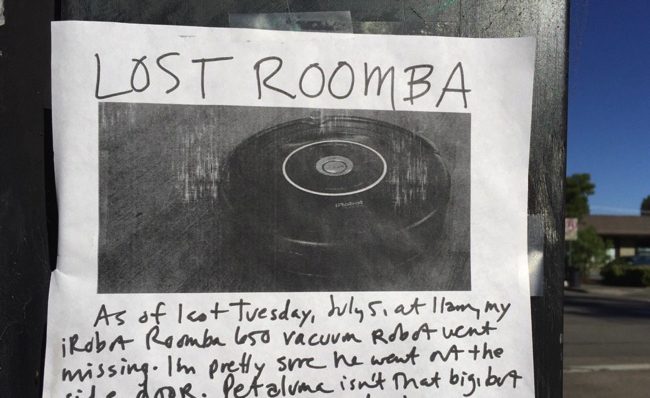 LOST ROOMBA
iRobot
As of last Tuesday, July 5, at 11am, my
iRobot Roomba 650 vacuum Robot went
missing. Im pretty sure he went out the
side door. Petaluma isn't that big, but